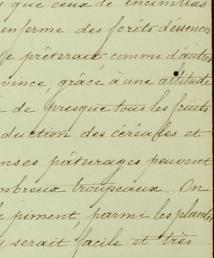 que ceux de
enferme des forêts d'essences
se prêterait comme d'autres
vince, grâce à une altitude
de presque tous les fruits
duction des céréales et
enses pâturages peuvent
mbreux troupeaux. On
le piment, parmi les plantes
serait facile et très